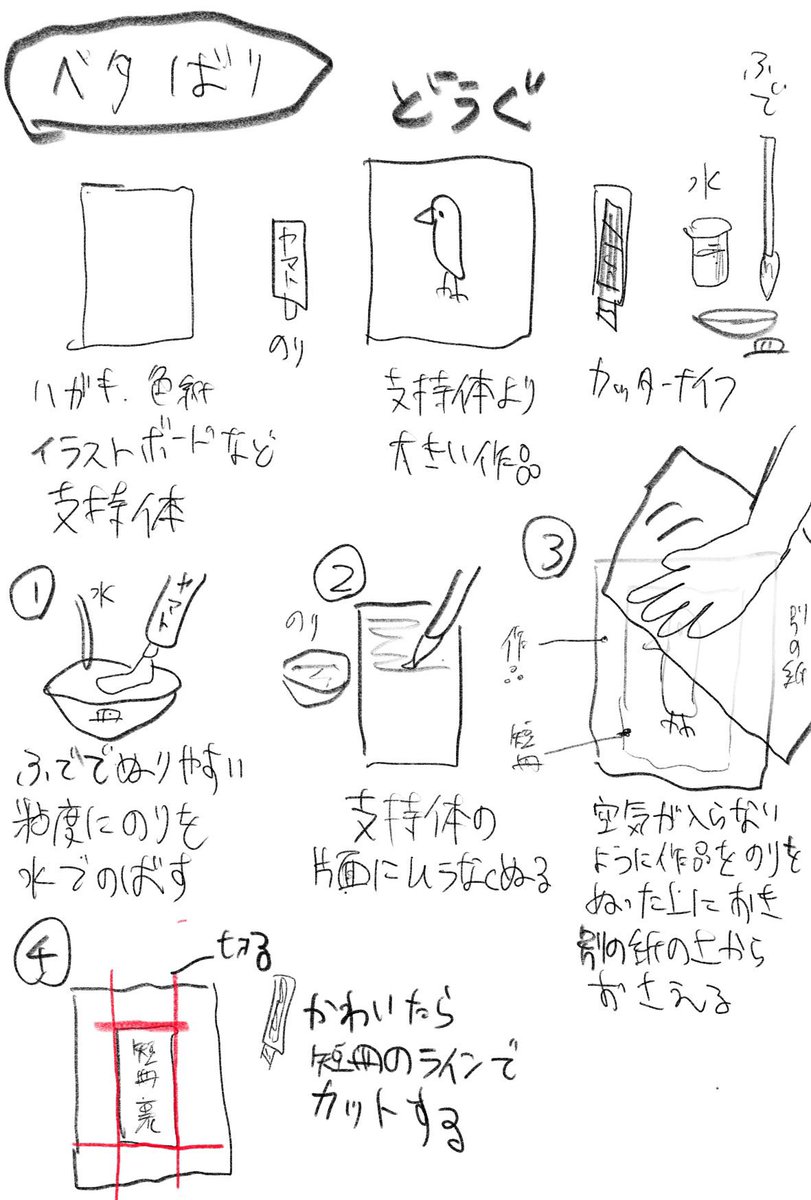 ベタばり
どうぐ
ふで
水
ヤマト
のり
ハガキ、色紙
イラストボードなど
支持体
支持体より
大きい作品
カッターナイフ
皿
①
水
ヤマト
皿
ふででぬりやすい
粘度にのりを
水でのばす
②
のり
支持体の
片面にムラなくぬる
③
作品
短冊
別の紙
空気が入らない
ように作品をのりを
ぬった上におき
別の紙の上から
おさえる
④
切る
短冊裏
かわいたら
短冊のラインで
カットする